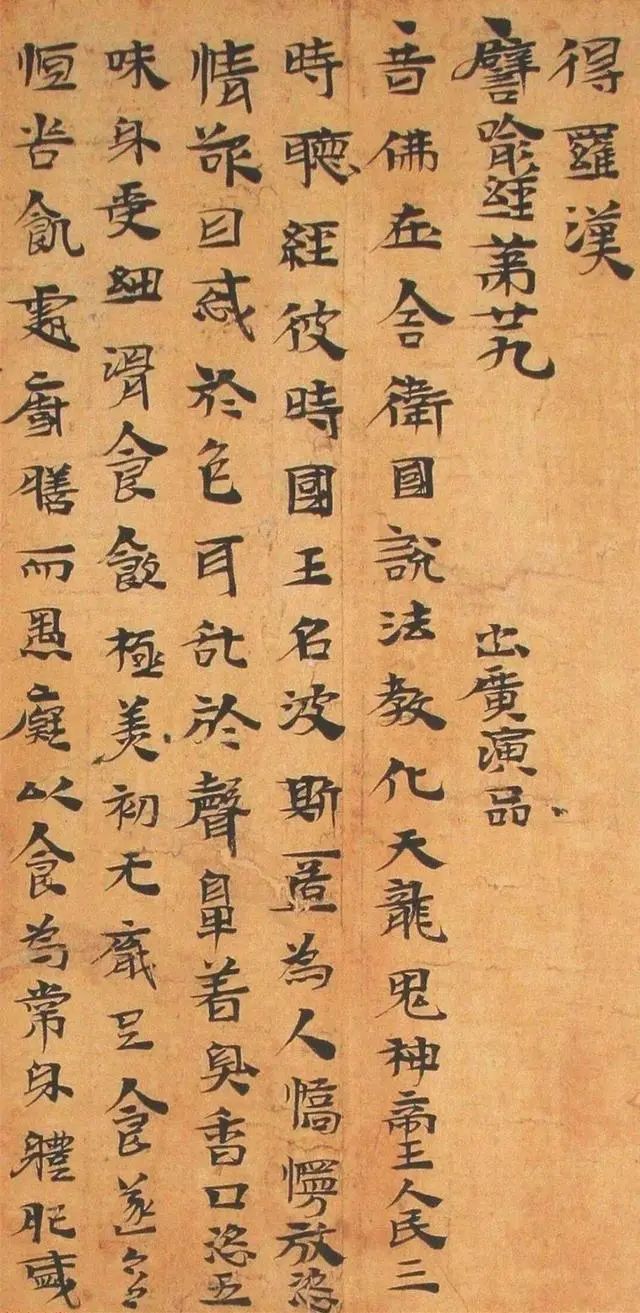 得羅漢
譬喻經第廿九 出廣演品
昔佛在舍衛國說法教化天龍鬼神帝王人民三
時聽經彼時國王名波斯匿為人憍慢放恣
情欲目惑於色耳乱於聲鼻着臭香口恣五
味身更細滑食飲極美初无厭足食遂
恒苦飢處廚膳而愚癡以食為常身體肥盛